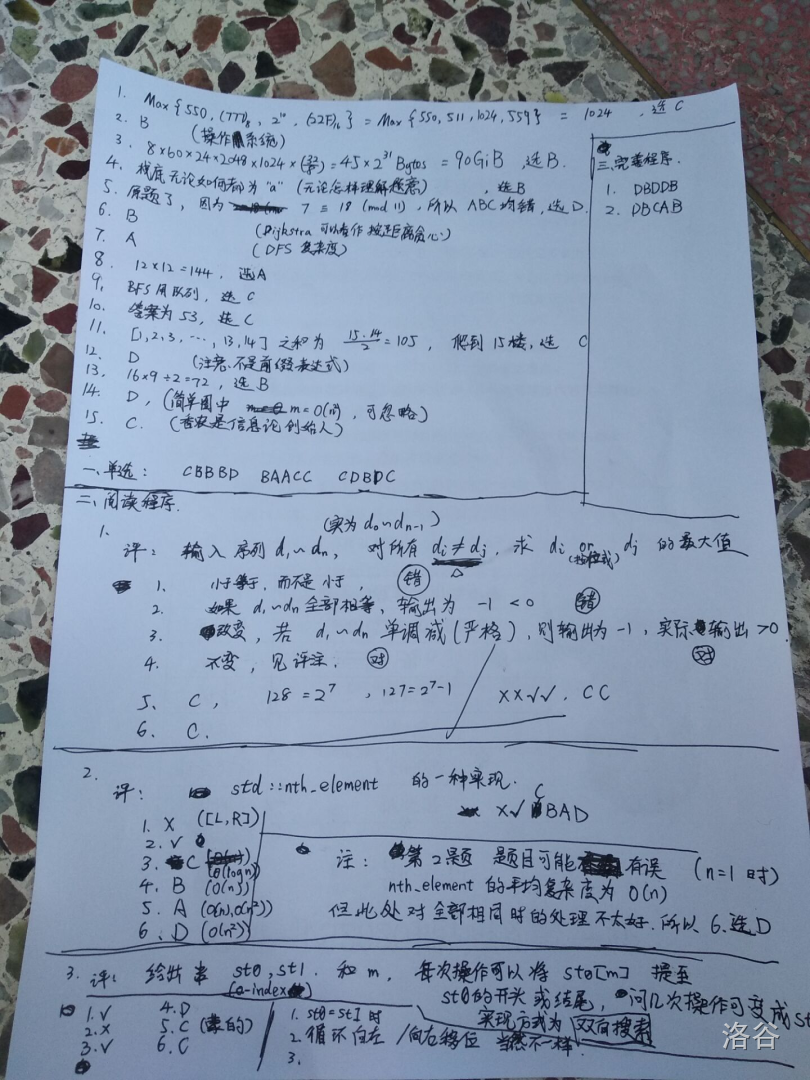 1. Max{550, (777)₈, 2¹⁰, (22F)₁₆} = Max{550, 511, 1024, 559} = 1024 , 选 C
2. B (操作系统)
3. 8×60×24×2048×1024×(32/8) = 45×2³¹ Bytes = 90GiB , 选 B.
4. 栈底无论如何都为 "a" (无论怎样理解题意) , 选B
5. 原题了, 因为 7 ≡ 18 (mod 11) , 所以 ABC 均错, 选 D.
6. B (Dijkstra 可以看作 按距离贪心)
7. A (DFS 复杂度)
8. 12×12=144 , 选A
9. BFS 用队列, 选 C
10. 答案为 53, 选 C
11. [1,2,3, ⋯, 13,14] 之和为 15·14/2 = 105 , 爬到 15楼, 选 C
12. D (注意, 不是前缀表达式)
13. 16×9÷2=72 , 选 B
14. D , (简单图中 m=O(n²) , 可忽略)
15. C. (香农是信息论创始人)
一. 单选: CBBBD BAACC CDBDC
三. 完善程序.
1. DBDDB
2. DBCAB
二. 阅读程序.
1. (实为 d₀~dₙ₋₁)
评: 输入序列 d₁~dₙ, 对所有 dᵢ≠dⱼ , 求 dᵢ or dⱼ 的最大值
1. 小于等于, 而不是小于 , 错
2. 如果 d₁~dₙ 全部相等, 输出为 -1 < 0 错
3. 改变, 若 d₁~dₙ 单调减(严格) , 则输出为 -1 , 实际输出 >0. 对
4. 不变, 见评注. 对
5. C , 128 = 2⁷ , 127=2⁷-1 XX√√. CC
6. C.
2.
评: std::nth_element 的一种实现.
X√CBAD
1. X ([L,R])
2. √
3. C (O(logn))
4. B (O(n))
5. A (O(n),O(n²))
6. D (O(n²))
注: 第2题 题目可能有误 (n=1 时)
nth_element 的平均复杂度为 O(n)
但此处对全部相同时的处理不太好. 所以 6. 选D
3. 评: 给出 st0, st1. 和 m , 每次操作可以将 st0[m] 提至
(0-index) st0 的开头 或结尾, 问几次操作可变成 st
实现方式为 双向搜索
1. √ 4. D
2. X 5. C
3. √ 6. C
1. st0=st1 时
2. 循环向左/向右移位 当然不一样.
3.
洛谷